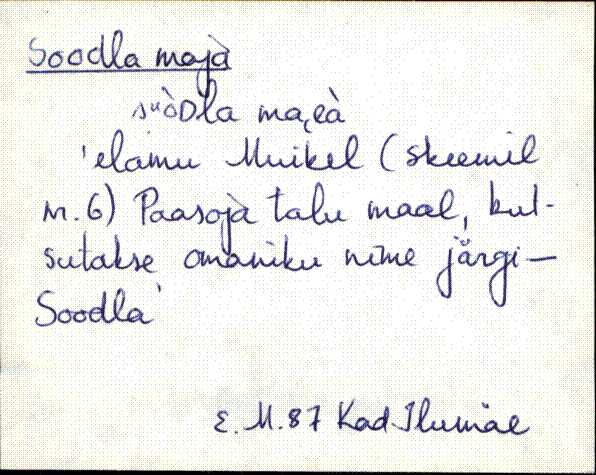 Soodla maja
suòDla ma,eà
'elamu Muikel (skeemil
nr. 6) Paasoja talu maal, kut-
sutakse omaniku nime järgi —
Soodla'
E. M. 87 Kad. Ilumäe